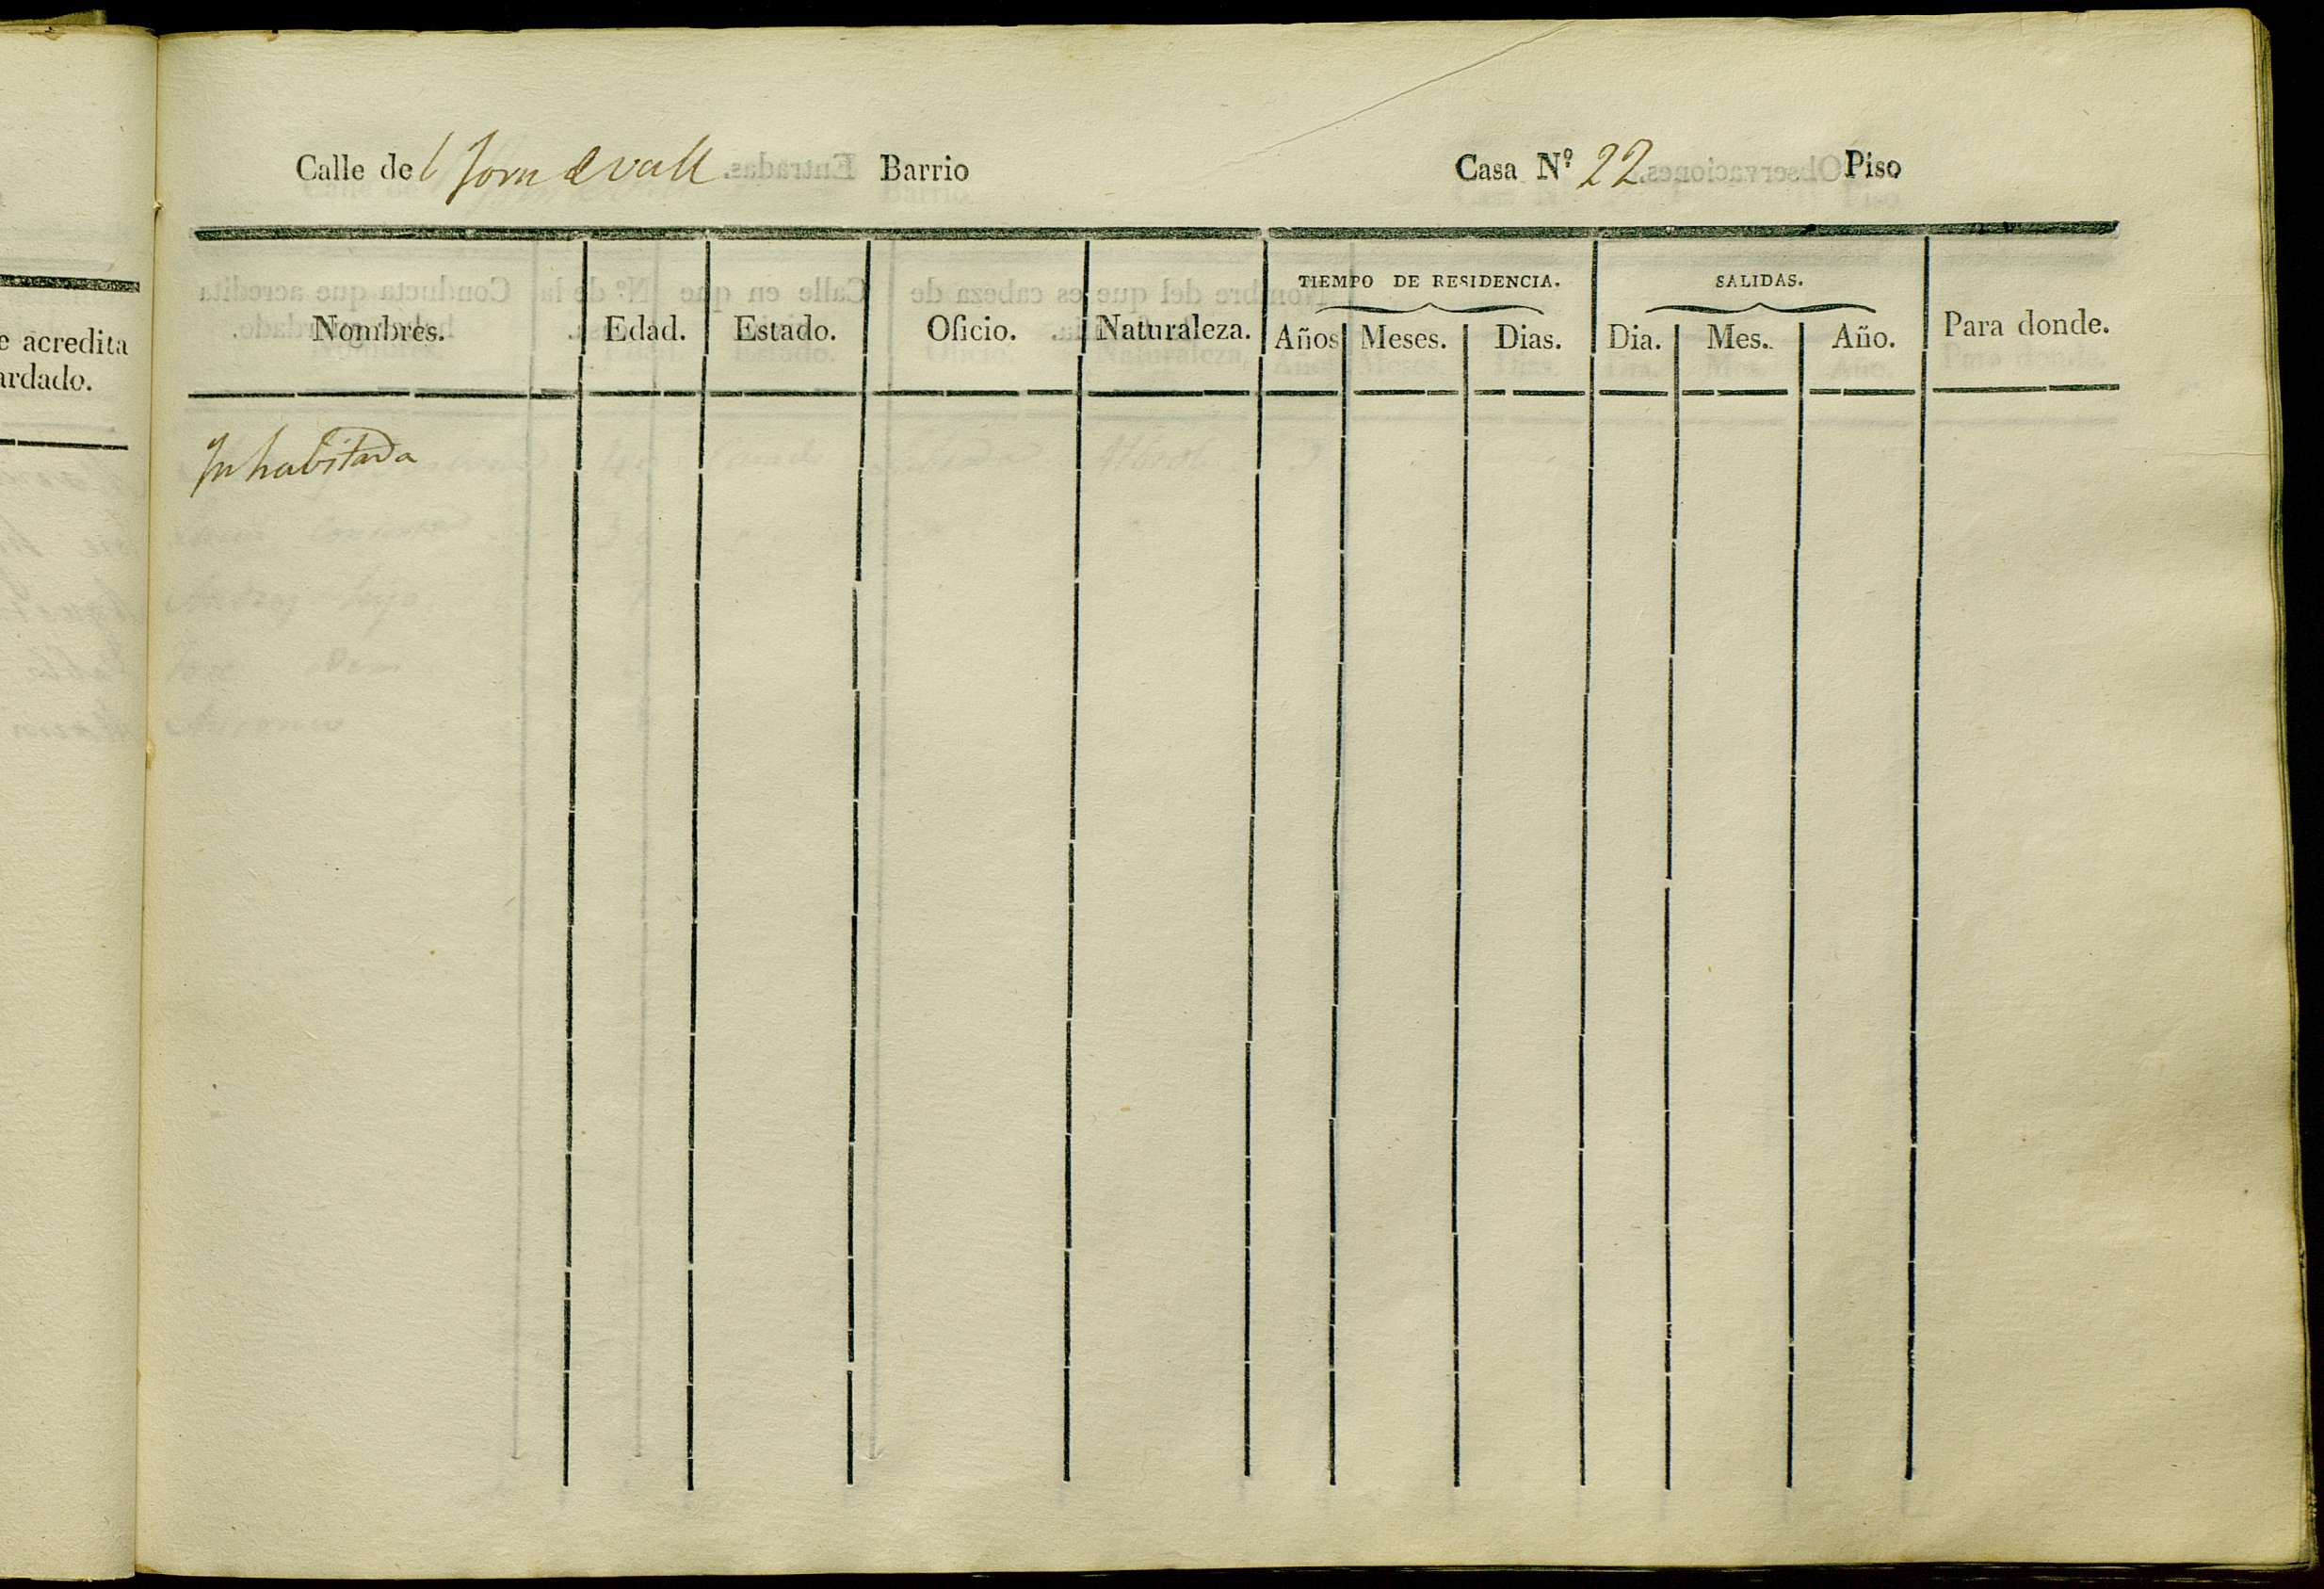 Calle del Forn de Vall Barrio Casa Nº 22 Piso
TIEMPO DE RESIDENCIA. SALIDAS.
Nombres. Edad. Estado. Oficio. Naturaleza. Años Meses. Dias. Dia. Mes. Año. Para donde.
Inhabitada
e acredita
ardado.